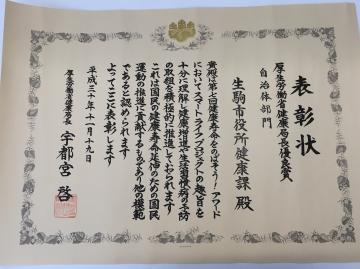 表彰状
厚生労働省健康局長優良賞
自治体部門
生駒市役所健康課 殿
貴殿は第七回健康寿命をのばそう！アワード
においてスマート・ライフ・プロジェクトの趣旨を
十分に理解し健康増進や生活習慣病の予防
の取組を積極的に推進しておられます
これは国民の健康寿命延伸のための国民
運動の推進に貢献するものであり他の模範
であると認められます
よってここに表彰します
平成三十年十一月十九日
厚生労働省健康局長 宇都宮 啓